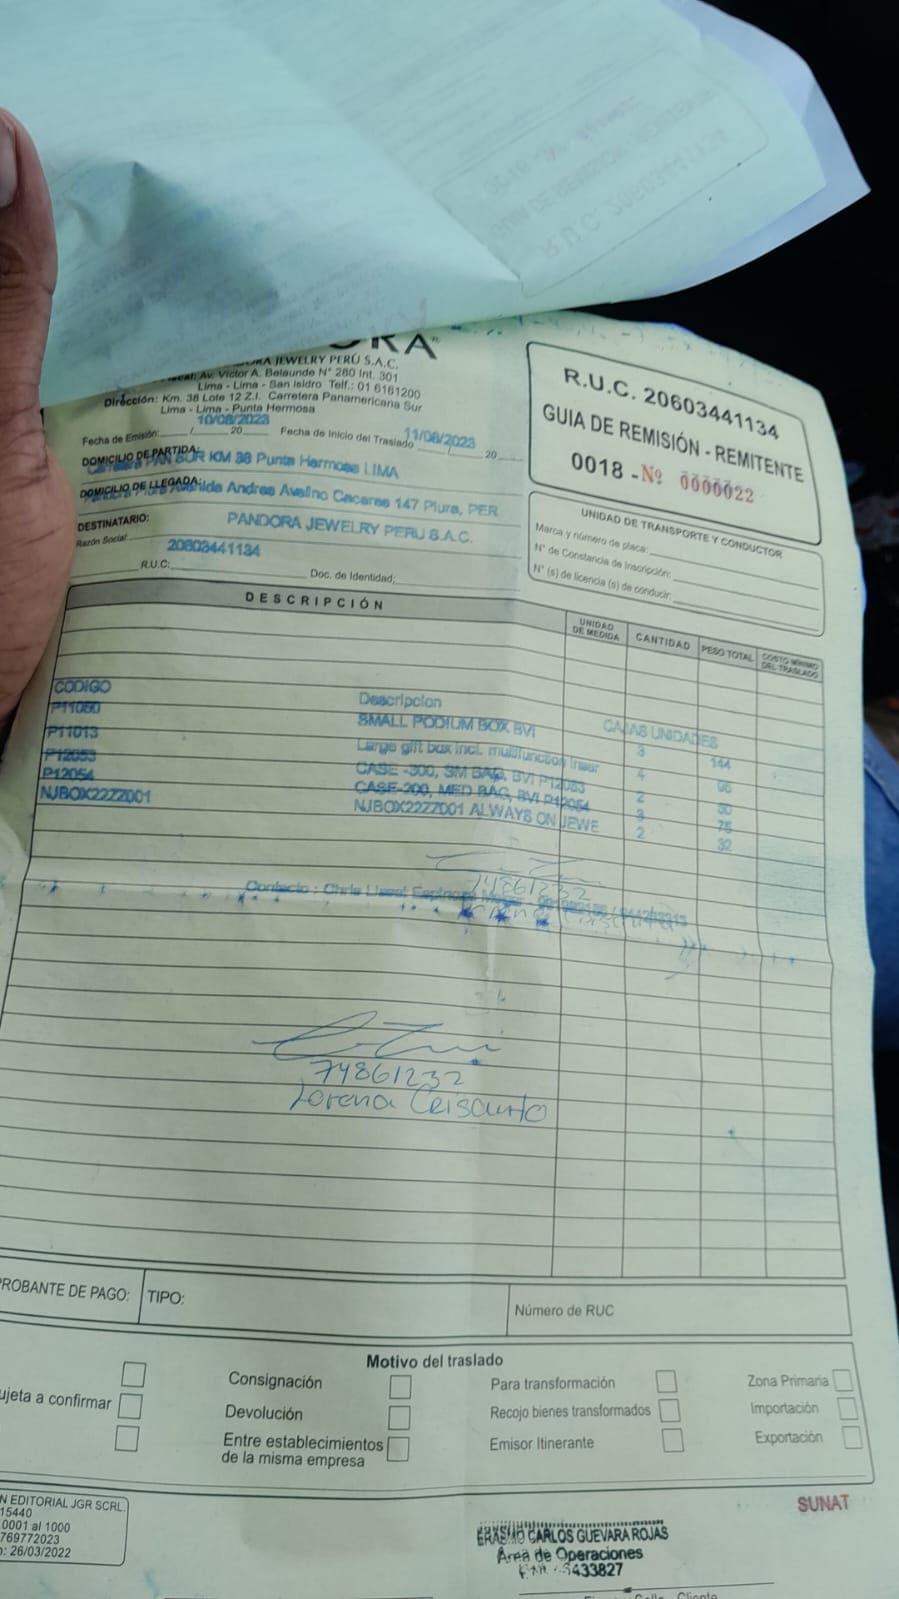 ORA
JEWELRY PERÚ S.A.C.
Av. Victor A. Belaunde N° 280 Int. 301
Lima - Lima - San Isidro Telf.: 01 6161200
Dirección: Km. 38 Lote 12 Z.I. Carretera Panamericana Sur
Lima - Lima - Punta Hermosa
10/08/2023 11/08/2023
Fecha de Emisión: / 20 Fecha de Inicio del Traslado / 20
DOMICILIO DE PARTIDA: SUR KM 38 Punta Hermosa LIMA
DOMICILIO DE LLEGADA: Andres Avelino Caceres 147 Piura, PER
DESTINATARIO: PANDORA JEWELRY PERU S.A.C.
Razón Social
20603441134
R.U.C: Doc. de Identidad:
R.U.C. 20603441134
GUIA DE REMISIÓN - REMITENTE
0018 - Nº 0000022
UNIDAD DE TRANSPORTE Y CONDUCTOR
Marca y número de placa:
N° de Constancia de Inscripción:
N° (s) de licencia (s) de conducir:
DESCRIPCIÓN UNIDAD DE MEDIDA CANTIDAD PESO TOTAL COSTO MÍNIMO DEL TRASLADO
CODIGO Descripcion CAJAS UNIDADES
SMALL PODIUM BOX BVI 3 144
P11013 Large gift box incl. multifunction inser 4
P12053 CASE -300, SM BAG, BVI P12053 2
P12054 CASE-200, MED BAG, BVI P12054 3 75
NJBOX22ZZ001 NJBOX22ZZ001 ALWAYS ON JEWE 2 32
74861232
Contacto : Chris
74861232
Lorena Crisanto
ROBANTE DE PAGO: TIPO: Número de RUC
Motivo del traslado
ujeta a confirmar
Consignación
Devolución
Entre establecimientos
de la misma empresa
Para transformación
Recojo bienes transformados
Emisor Itinerante
Zona Primaria
Importación
Exportación
SUNAT
N EDITORIAL JGR SCRL.
15440
0001 al 1000
769772023
: 26/03/2022
ERASMO CARLOS GUEVARA ROJAS
Area de Operaciones
433827